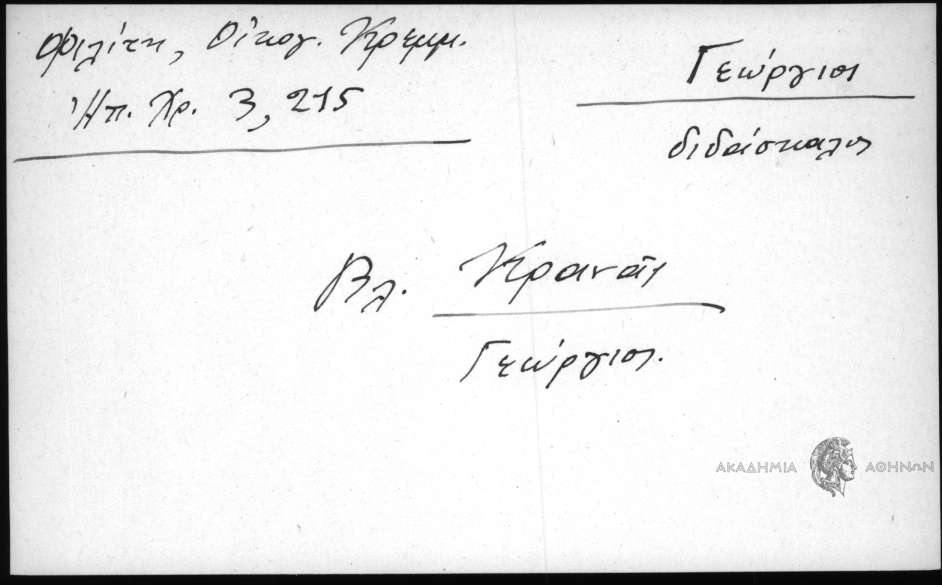 Φιλίτη, Οἰκογ. Κρεμμ.
Ἠπ. Χρ. 3, 215
Γεώργιος
διδάσκαλος
Βλ. Κρανᾶς
Γεώργιος.
ΑΚΑΔΗΜΙΑ ΑΘΗΝΩΝ